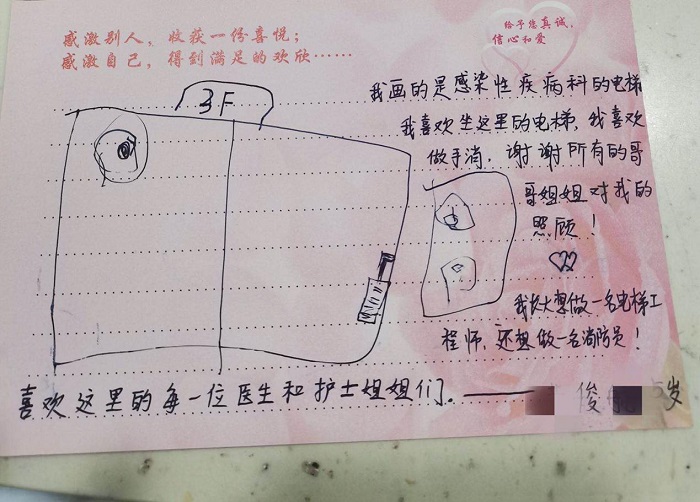 感激别人，收获一份喜悦；
感激自己，得到满足的欢欣……
给予您真诚，
信心和爱
3F
我画的是感染性疾病科的电梯
我喜欢坐这里的电梯，我喜欢
做手消，谢谢所有的哥
哥姐姐对我的
照顾！
我长大想做一名电梯工
程师，还想做一名消防员！
喜欢这里的每一位医生和护士姐姐们。——俊 5岁